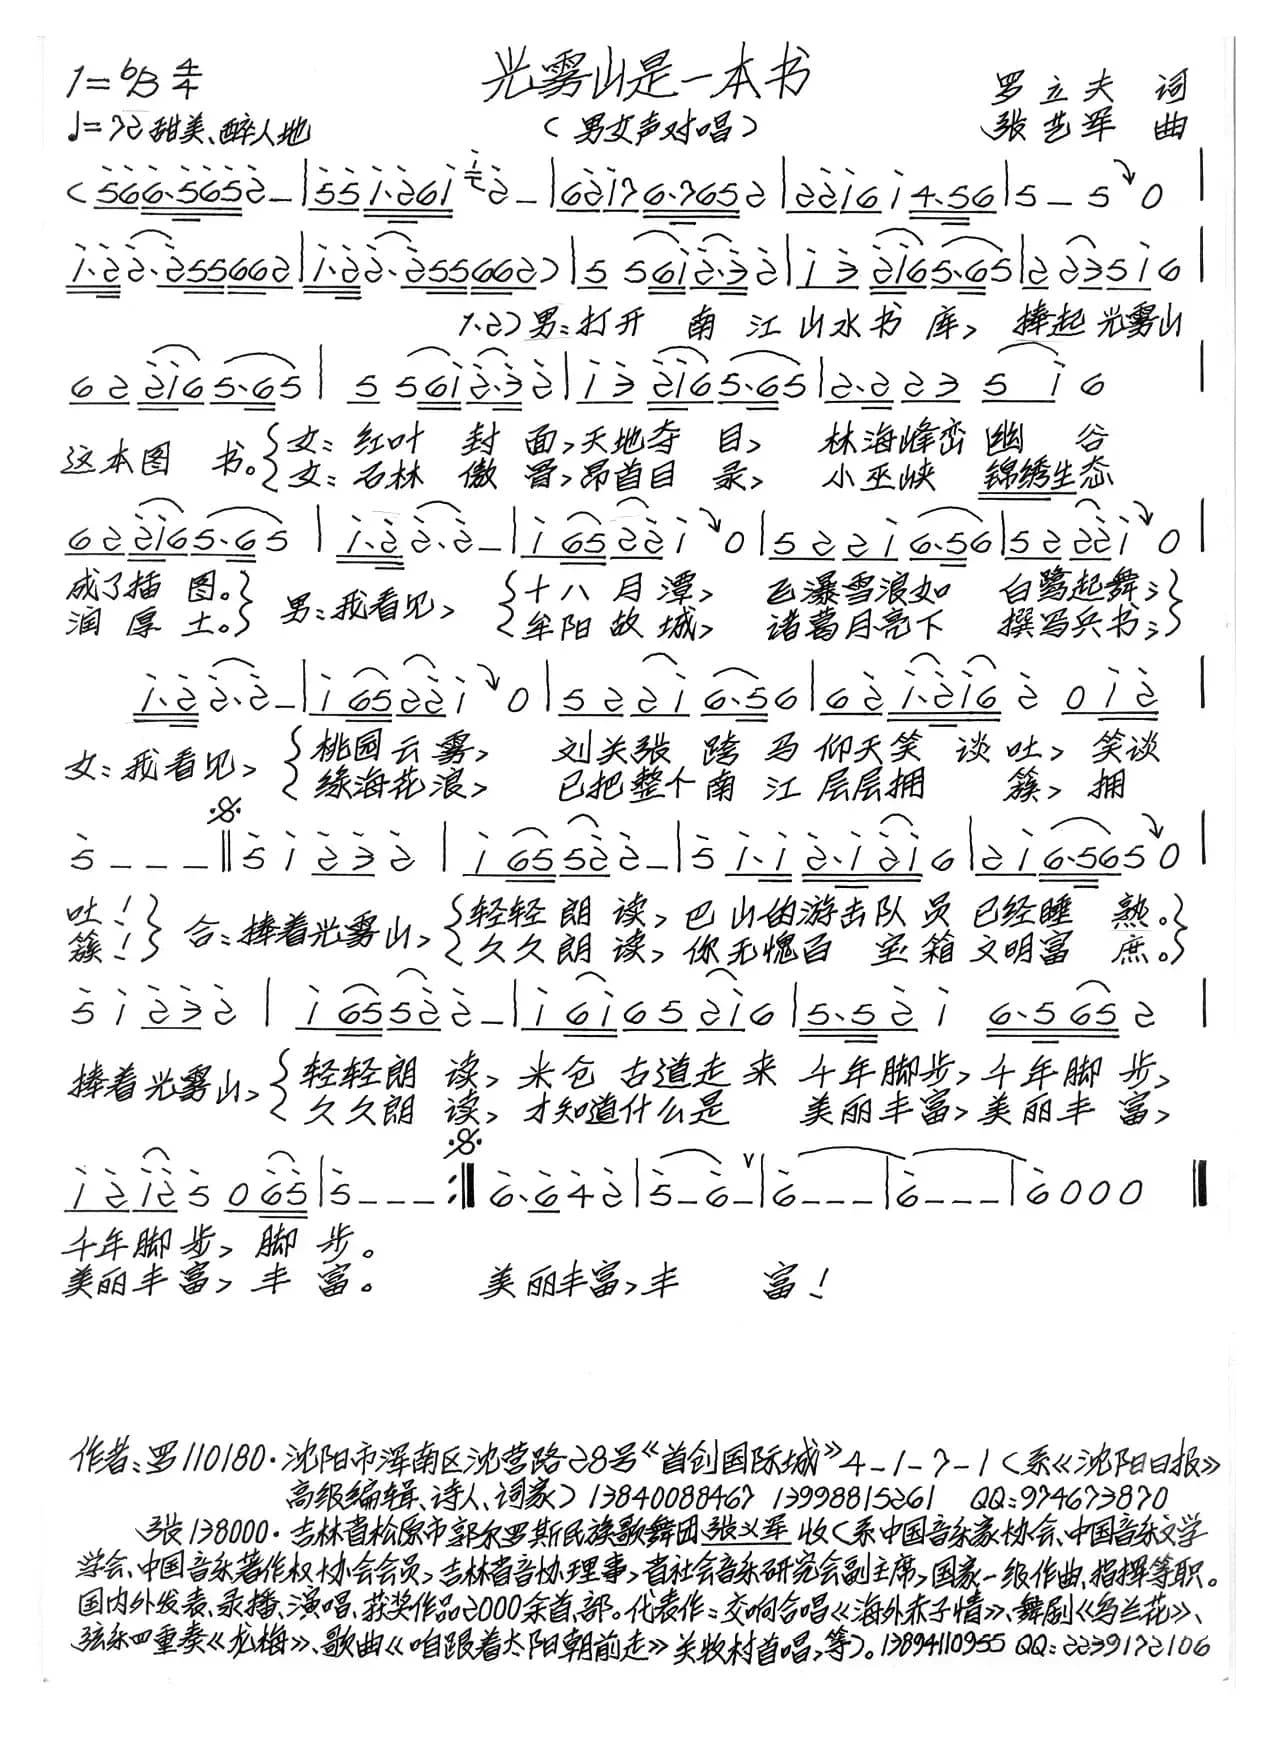 光雾山是一本书
1=♭B 4/4
罗立夫 词
♩=72 甜美、醉人地
（男女声对唱）
张艺军 曲
(566·5652–|551·261 2–|62176·7652|22161 4·56|5–5 0|
1·22·255662|1·22·255662)|5 5612·32|13 2165·65|223516|
1.2)男：打开 南江山水书 库，捧起光雾山
62 2165·65|5 5612·32|13 2165·65|2·223 5 16
这本图 书。{女：红叶 封 面，天地夺 目， 林海峰峦 幽 谷
{女：石林 傲 骨，昂首目 录， 小巫峡 锦绣生态
622165·65|1·22·2–|1 65221 0|52216·56|52221 0|
成了插 图。}男：我看见，{十八月潭， 飞瀑雪浪如 白鹭起舞；}
润厚土。} {牟阳故城， 诸葛月亮下 撰写兵书；}
1·22·2–|1 65221 0|5221 6·56|62 1·216 2 0 12|
女：我看见，{桃园云雾， 刘关张 跨马仰天笑 谈吐， 笑谈
{绿海花浪， 已把整个南江层层拥 簇，拥
5–––‖51232|1 65522–|5 1·12·1216|216·565 0|
吐！}合：捧着光雾山，{轻轻朗读，巴山的游击队员已经睡 熟。}
簇！} {久久朗读，你无愧百 宝箱文明富 庶。}
51232|1 65522–|1616 5216|5·521 6·5652|
捧着光雾山，{轻轻朗 读，米仓 古道走来 千年脚步，千年脚 步，
{久久朗 读，才知道什么是 美丽丰富，美丽丰 富，
12125 0 65|5–––:‖6·642|5–6–|6–––|6–––|6000‖
千年脚步，脚 步。
美丽丰富，丰 富。 美丽丰富，丰 富！
作者：罗110180·沈阳市浑南区沈营路28号《首创国际城》4–1–7–1（系《沈阳日报》
高级编辑、诗人、词家）13840088467 13998815261 QQ:974673870
张138000·吉林省松原市郭尔罗斯民族歌舞团张义军收（系中国音乐家协会、中国音乐文学
学会、中国音乐著作权协会会员，吉林省音协理事，省社会音乐研究会副主席，国家一级作曲、指挥等职。
国内外发表、录播、演唱、获奖作品2000余首、部。代表作：交响合唱《海外赤子情》、舞剧《乌兰花》、
弦乐四重奏《龙梅》、歌曲《咱跟着太阳朝前走》关牧村首唱，等）。13894110955 QQ:2239172106